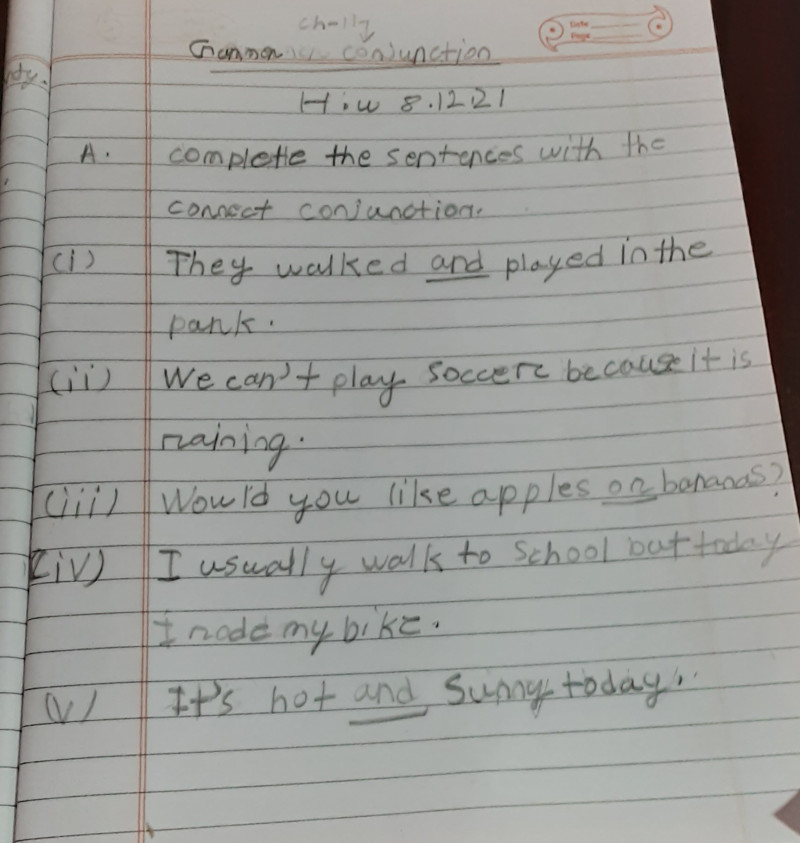 ch-11
Grammar conjunction
H.W 8.12.21
A. complete the sentences with the
correct conjunction.
(i) They walked and played in the
park.
(ii) We can't play soccer because it is
raining.
(iii) Would you like apples or bananas?
(iv) I usually walk to school but today
I rode my bike.
(v) It's hot and sunny today.